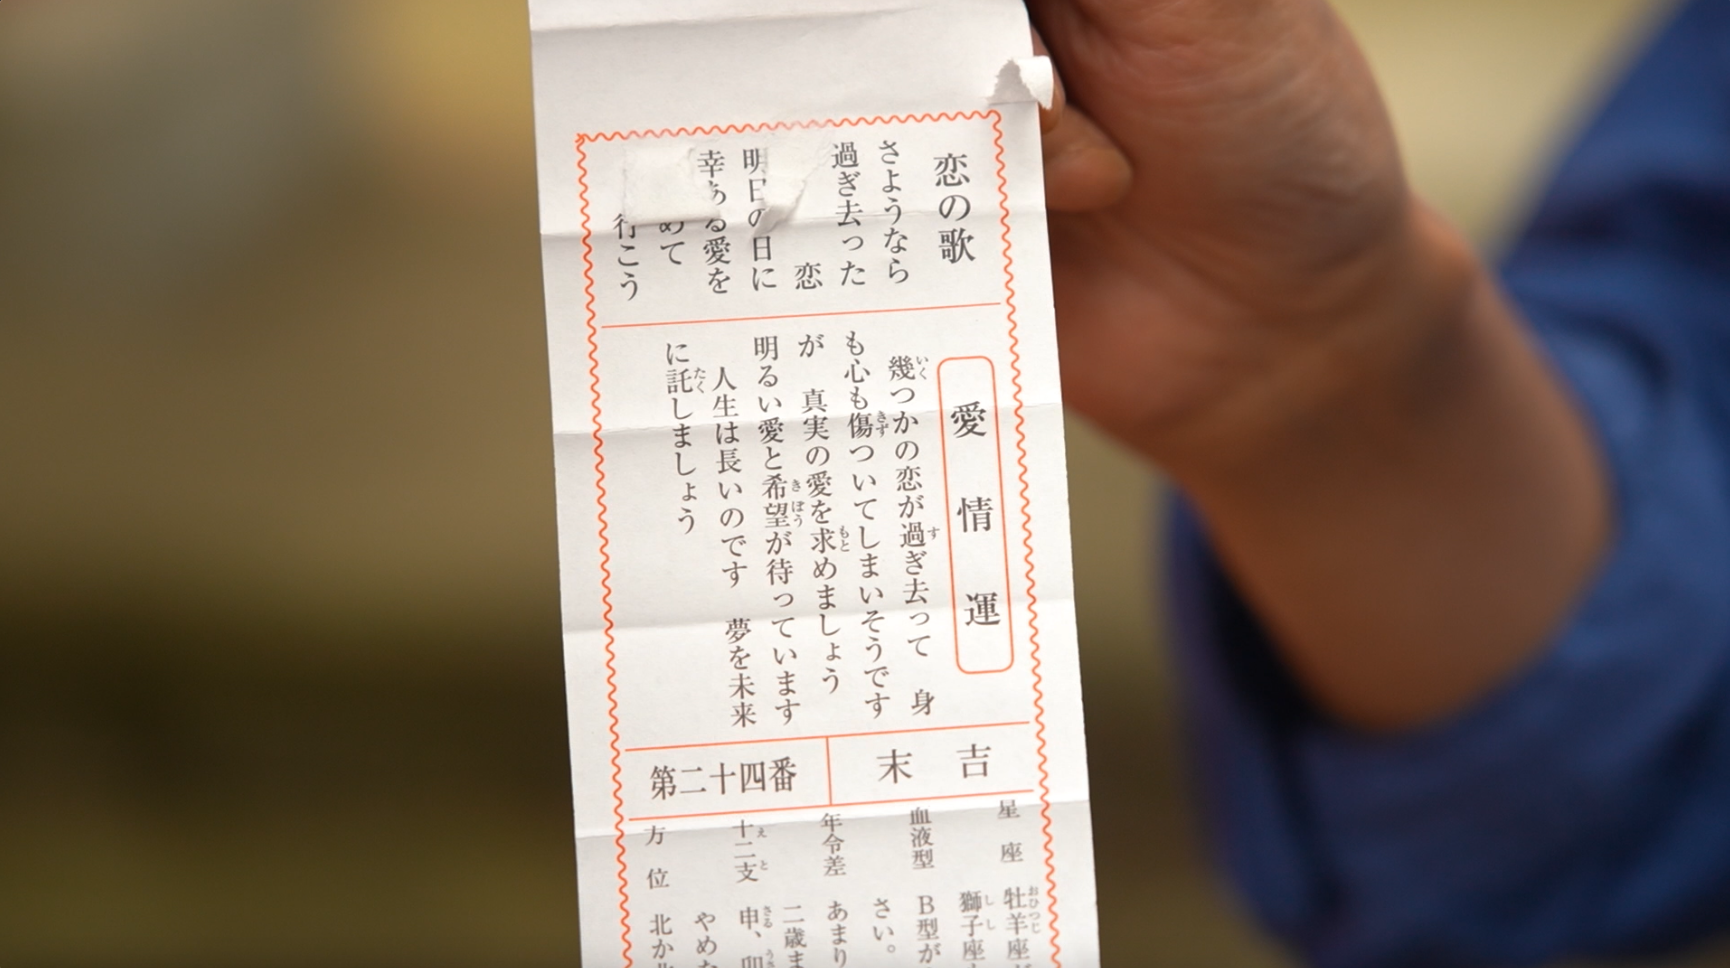 恋の歌
さようなら
過ぎ去った
恋
明日の日に
幸ある愛を
めて
行こう
愛情運
幾つかの恋が過ぎ去って 身
も心も傷ついてしまいそうです
が 真実の愛を求めましょう
明るい愛と希望が待っています
人生は長いのです 夢を未来
に託しましょう
末吉
第二十四番
星座 牡羊座
獅子座
血液型 B型が
さい。
年令差 あまり
二歳ま
十二支 申、卯
やめな
方位 北か北